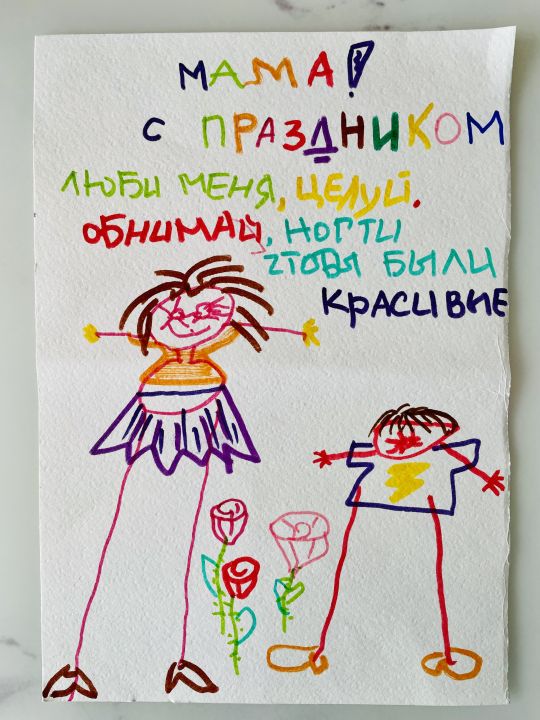 МАМА!
С ПРАЗДНИКОМ
ЛЮБИ МЕНЯ, ЦЕЛУЙ,
ОБНИМАЙ, НОГТИ
ЧТОБЫ БЫЛИ
КРАСИВИЕ